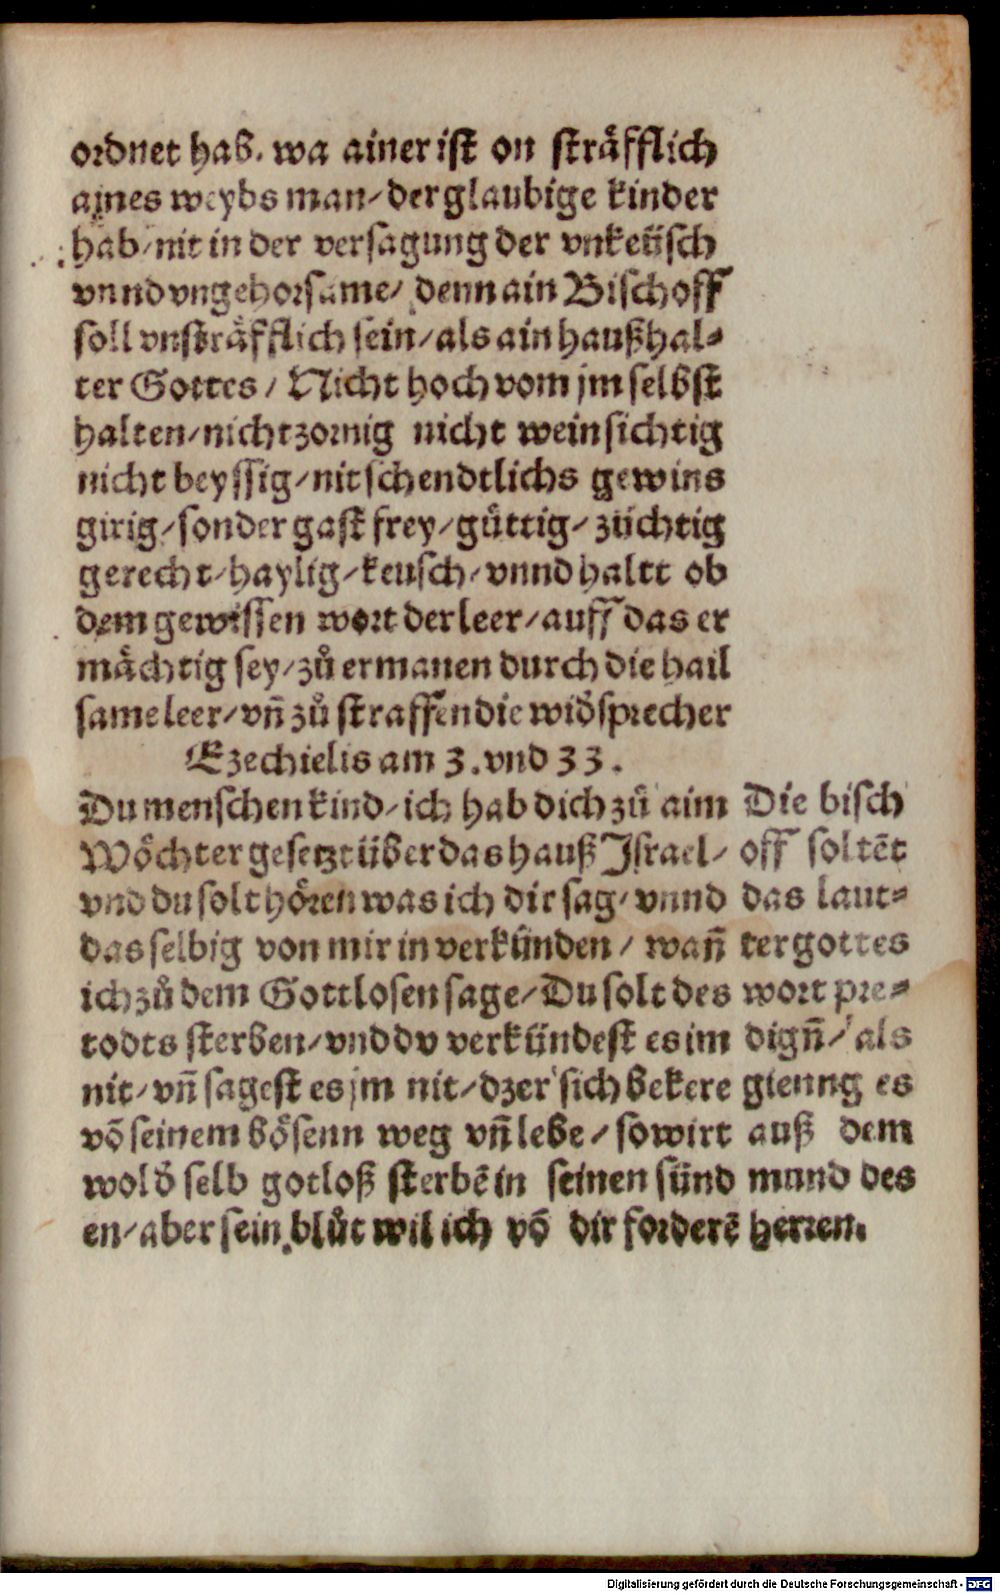 ordnet hab. wa ainer ist on sträfflich
aines weybs man/ der glaubige kinder
hab/ nit in der versagung der vnkeüsch
vnnd vngehorsame/ denn ain Bischoff
soll vnsträfflich sein/ als ain haußhal-
ter Gottes/ Nicht hoch vom jm selbst
halten/ nicht zornig nicht weinsichtig
nicht beyssig/ nit schendtlichs gewins
girig/ sonder gast frey/ güttig/ züchtig
gerecht/ haylig/ keusch/ vnnd haltt ob
dem gewissen wort der leer/ auff das er
mächtig sey/ zů ermanen durch die hail
same leer/ vn̄ zů straffen die wid᷑sprecher
Ezechielis am 3. vnd 33.
Du menschen kind/ ich hab dich zů aim
Wöchter gesetzt über das hauß Israel/
vnd du solt hören was ich dir sag/ vnnd
das selbig von mir in verkünden/ wan̄
ich zů dem Gottlosen sage/ Du solt des
todts sterben/ vnd dv verkündest es im
nit/ vn̄ sagest es jm nit/ dz er sich bekere
vō seinem bösenn weg vn̄ lebe/ so wirt
wol d᷑ selb gotloß sterbē in seinen sünd
en/ aber sein blůt wil ich vō dir forderē
Die bisch
off soltēt
das laut-
ter gottes
wort pre-
dign̄/ als
gienng es
auß dem
mund des
herren.
Digitalisierung gefördert durch die Deutsche Forschungsgemeinschaft - DFG